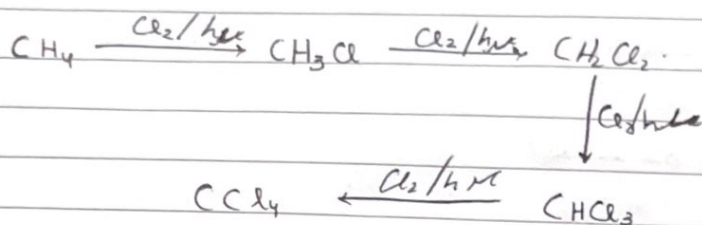 CH₄ —Cl₂/hν→ CH₃Cl —Cl₂/hν→ CH₂Cl₂.
↓ Cl₂/hν
CCl₄ ←Cl₂/hν— CHCl₃